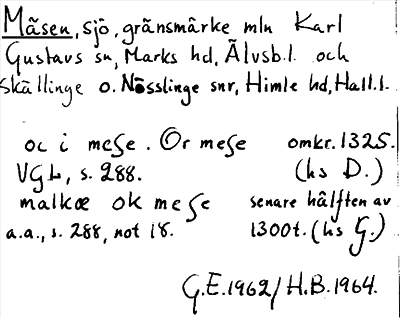 Mäsen, sjö, gränsmärke mln Karl
Gustavs sn, Marks hd, Älvsb.l. och
Skällinge o. Nösslinge snr, Himle hd, Hall.l.
oc i mese. Or mese omkr. 1325.
VGL, s. 288. (hs D.)
malkæ ok mese senare hälften av
a.a., s. 288, not 18. 1300t. (hs G.)
G.E. 1962/H.B. 1964.